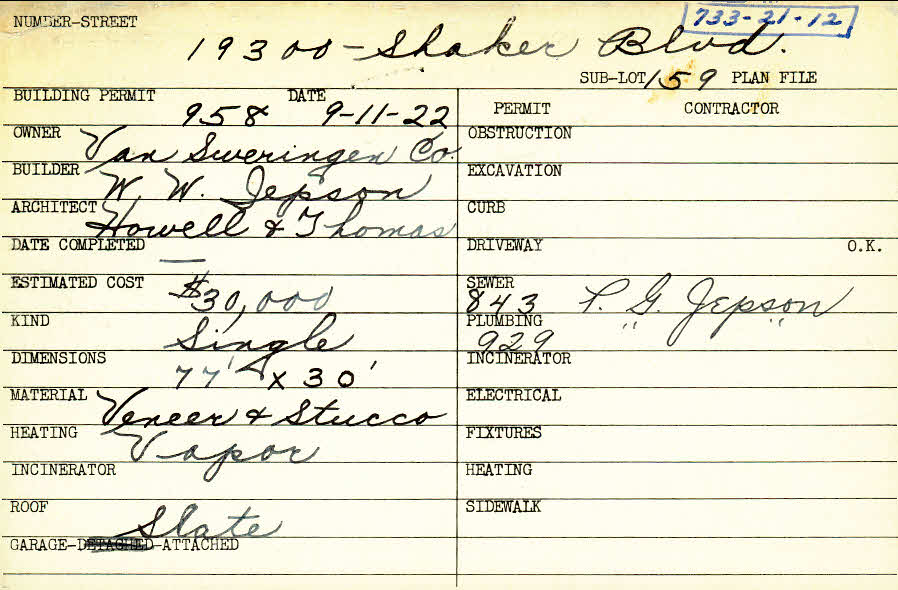 733-21-12
NUMBER-STREET 19300-Shaker Blvd.
SUB-LOT 159 PLAN FILE
BUILDING PERMIT 958 DATE 9-11-22
PERMIT CONTRACTOR
OWNER Van Sweringen Co.
OBSTRUCTION
BUILDER W. W. Jepson
EXCAVATION
ARCHITECT Howell & Thomas
CURB
DATE COMPLETED —
DRIVEWAY O.K.
ESTIMATED COST $30,000
SEWER 843 P. G. Jepson
KIND Single
PLUMBING 929 " "
DIMENSIONS 77' x 30'
INCINERATOR
MATERIAL Veneer & Stucco
ELECTRICAL
HEATING Vapor
FIXTURES
INCINERATOR
HEATING
ROOF Slate
SIDEWALK
GARAGE-DETACHED-ATTACHED